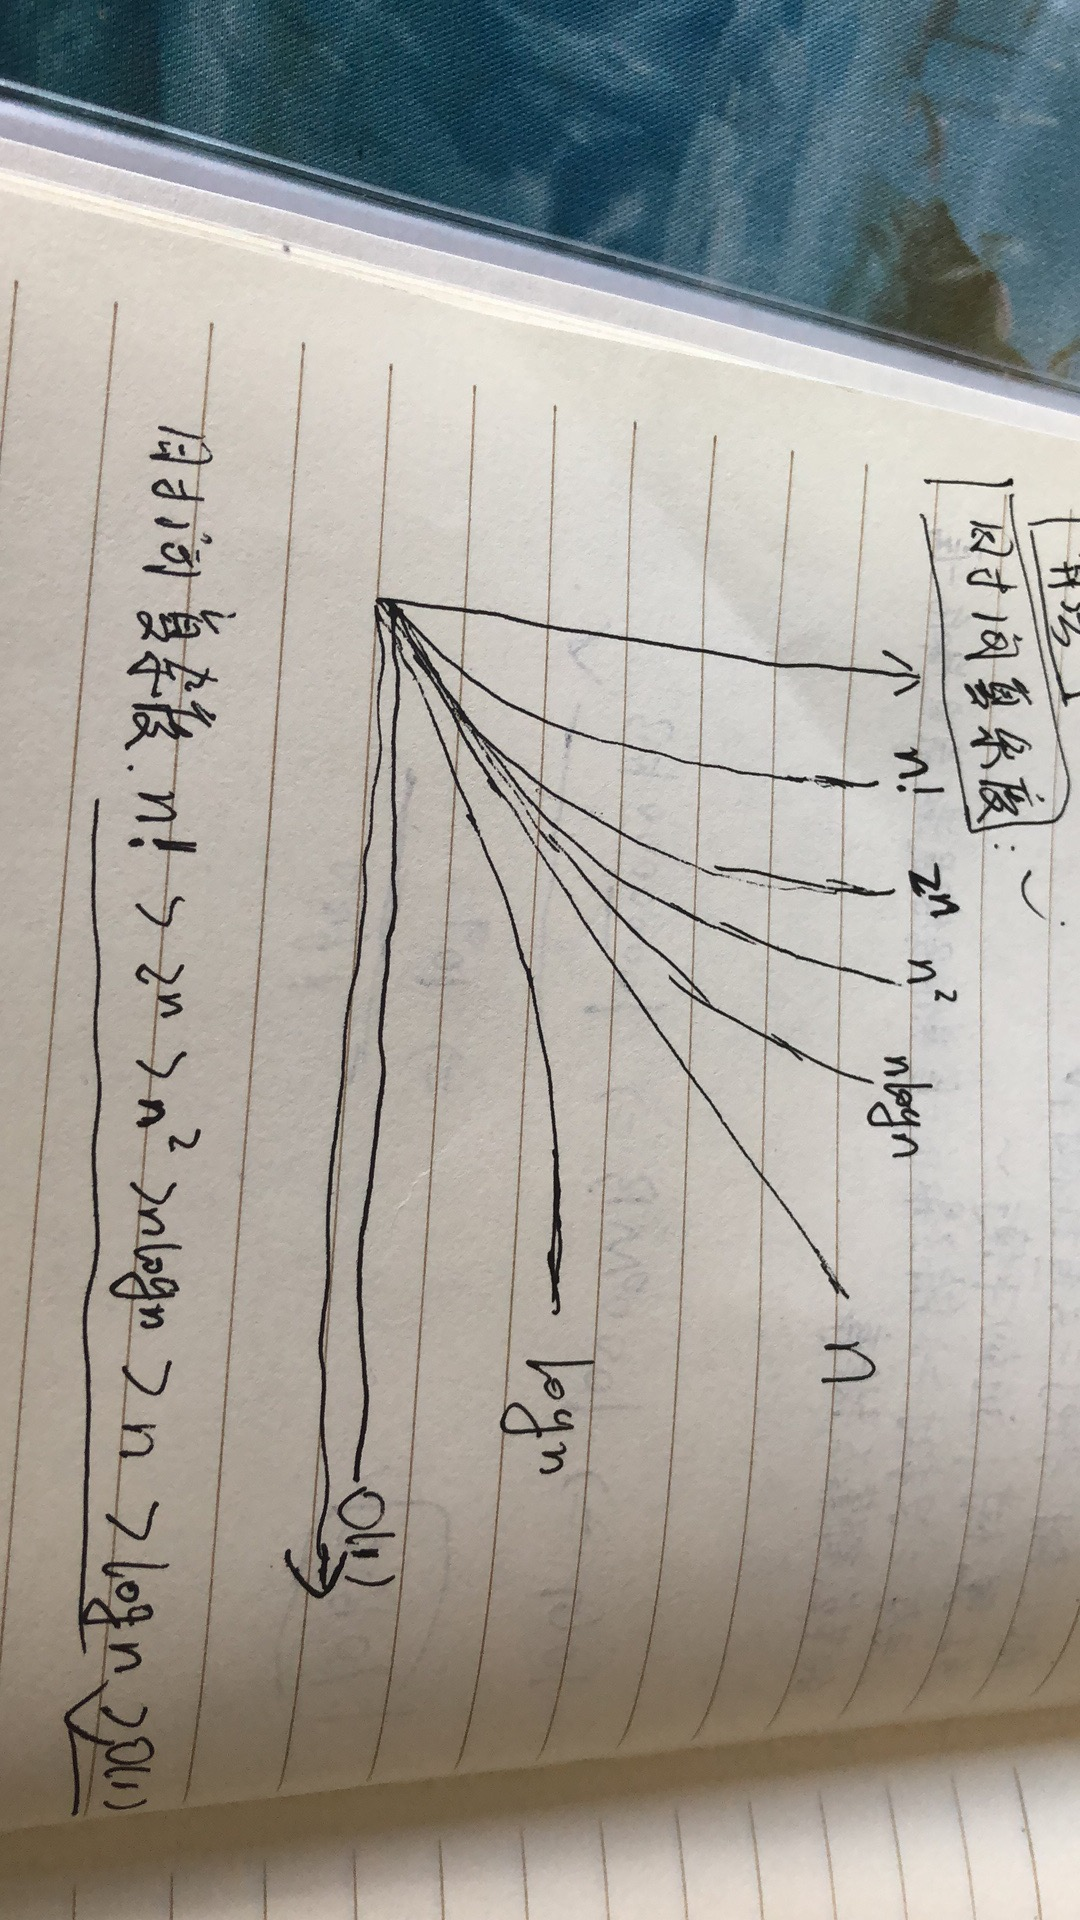 时间复杂度:
n!
2n
n²
nlogn
n
logn
O(1)
时间复杂度. n! > 2n > n² > nlogn > n > logn > O(1)